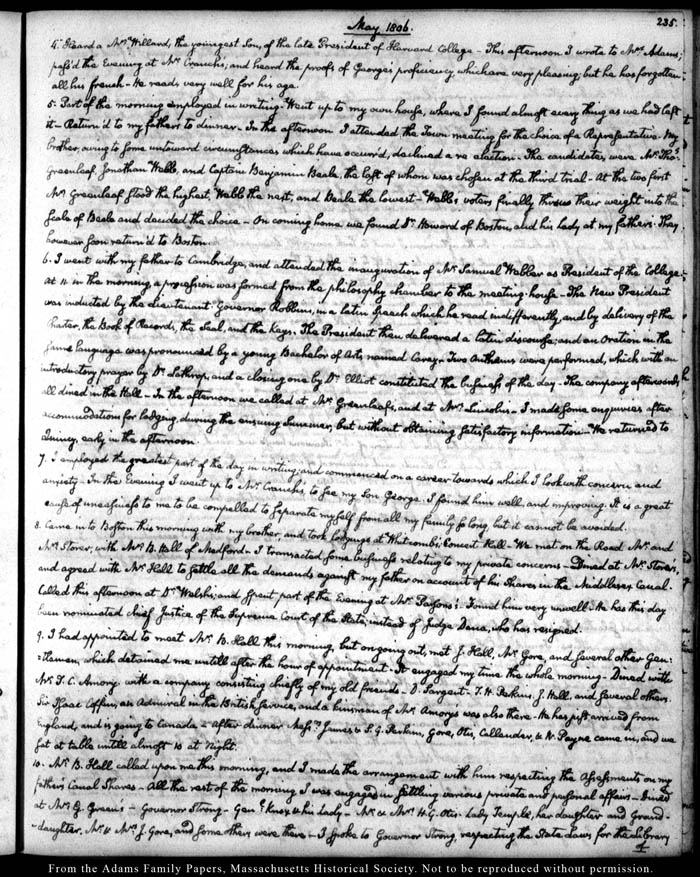 May 1806.
235.
4. Heard a Mr. Willard, the youngest Son, of the late President of Harvard College — This afternoon I wrote to Mrs. Adams;
pass'd the Evening at Mr. Cranch's, and heard the proofs of George's proficiency which are very pleasing; but he has forgotten
all his french — He reads very well for his age.
5. Part of the morning employed in writing. Went up to my own house, where I found almost every thing as we had left
it — Return'd to my father's to dinner. In the afternoon I attended the Town meeting for the choice of a Representative. My
brother, owing to some untoward circumstances which have occurr'd, declined a re election. The candidates, were Mr. Thos.
Greenleaf, Jonathan Webb, and Captain Benjamin Beale, the last of whom was chosen at the third trial — At the two first
Mr. Greenleaf stood the highest, Webb the next, and Beale the lowest — Webb's voters finally threw their weight into the
scale of Beale and decided the choice — On coming home we found Dr. Howard of Boston, and his lady at my father's. They
however soon return'd to Boston.
6. I went with my father to Cambridge, and attended the inauguration of Mr. Samuel Webber as President of the College.
At 11 in the morning a procession was formed from the philosophy chamber to the meeting-house — The New President
was inducted by the Lieutenant Governor Robbins, in a latin speech which he read indifferently, and by delivery of the
Charter, the Book of Records, the Seal, and the Keys. The President then delivered a latin discourse; and an Oration in the
same language was pronounced by a young Bachelor of Arts, named Carey — Two Anthems were performed, which with an
introductory prayer by Dr. Lathrop, and a closing one by Dr. Elliot constituted the business of the day — The company afterwards
all dined in the Hall — In the afternoon we called at Mr. Greenleaf's, and at Mrs. Lincoln — I made some enquiries after
accommodations for lodging during the ensuing Summer, but without obtaining satisfactory information — We returned to
Quincy, early in the afternoon.
7. I employed the greatest part of the day in writing; and commenced on a career towards which I look with concern and
anxiety — In the Evening I went up to Mr. Cranch's, to see my Son George. I found him well, and improving. It is a great
cause of uneasiness to me to be compelled to separate myself from all my family so long, but it cannot be avoided.
8. Came into Boston this morning with my brother, and took lodgings at Whitcomb's; Concert Hall — We met on the Road Mr. and
Mrs. Storer, with Mr. B. Hall of Medford — I transacted some business relating to my private concerns — Dined at Mr. Storer's,
and agreed with Mr. Hall to settle all the demands against my father on account of his Shares in the Middlesex Canal.
Called this afternoon at Dr. Welsh's; and spent part of the Evening at Mr. Parsons's. Found him very unwell. He has this day
been nominated chief Justice of the Supreme Court of the State, instead of Judge Dana, who has resigned.
9. I had appointed to meet Mr. B. Hall this morning, but on going out, met J. Hall, Mr. Gore, and several other Gen:
:tlemen, which detained me untill after the hour of appointment. It engaged my time the whole morning — Dined with
Mr. T. C. Amory, with a company consisting chiefly of my old friends — D. Sargent — T. H. Perkins, J. Hall, and several others.
Sir Isaac Coffin, an Admiral in the British Service, and a kinsman of Mr. Amory's was also there — He has just arrived from
England, and is going to Canada — After dinner Messrs. James & S. G. Perkins, Gore, Otis, Callender, & W. Payne came in, and we
sat at table untill almost 10 at Night.
10. Mr. B. Hall called upon me this morning, and I made the arrangement with him respecting the Assessments on my
father's Canal Shares — All the rest of the morning I was engaged in settling various private and personal affairs — Dined
at Mr. J. Green's — Governor Strong — Genl. Knox & his Lady — Mr. & Mrs. H. G. Otis — Lady Temple, her daughter and Grand-
-daughter, Mr. & Mrs. J. Gore, and some others were there — I spoke to Governor Strong, respecting the State Laws for the Library
of
From the Adams Family Papers, Massachusetts Historical Society. Not to be reproduced without permission.